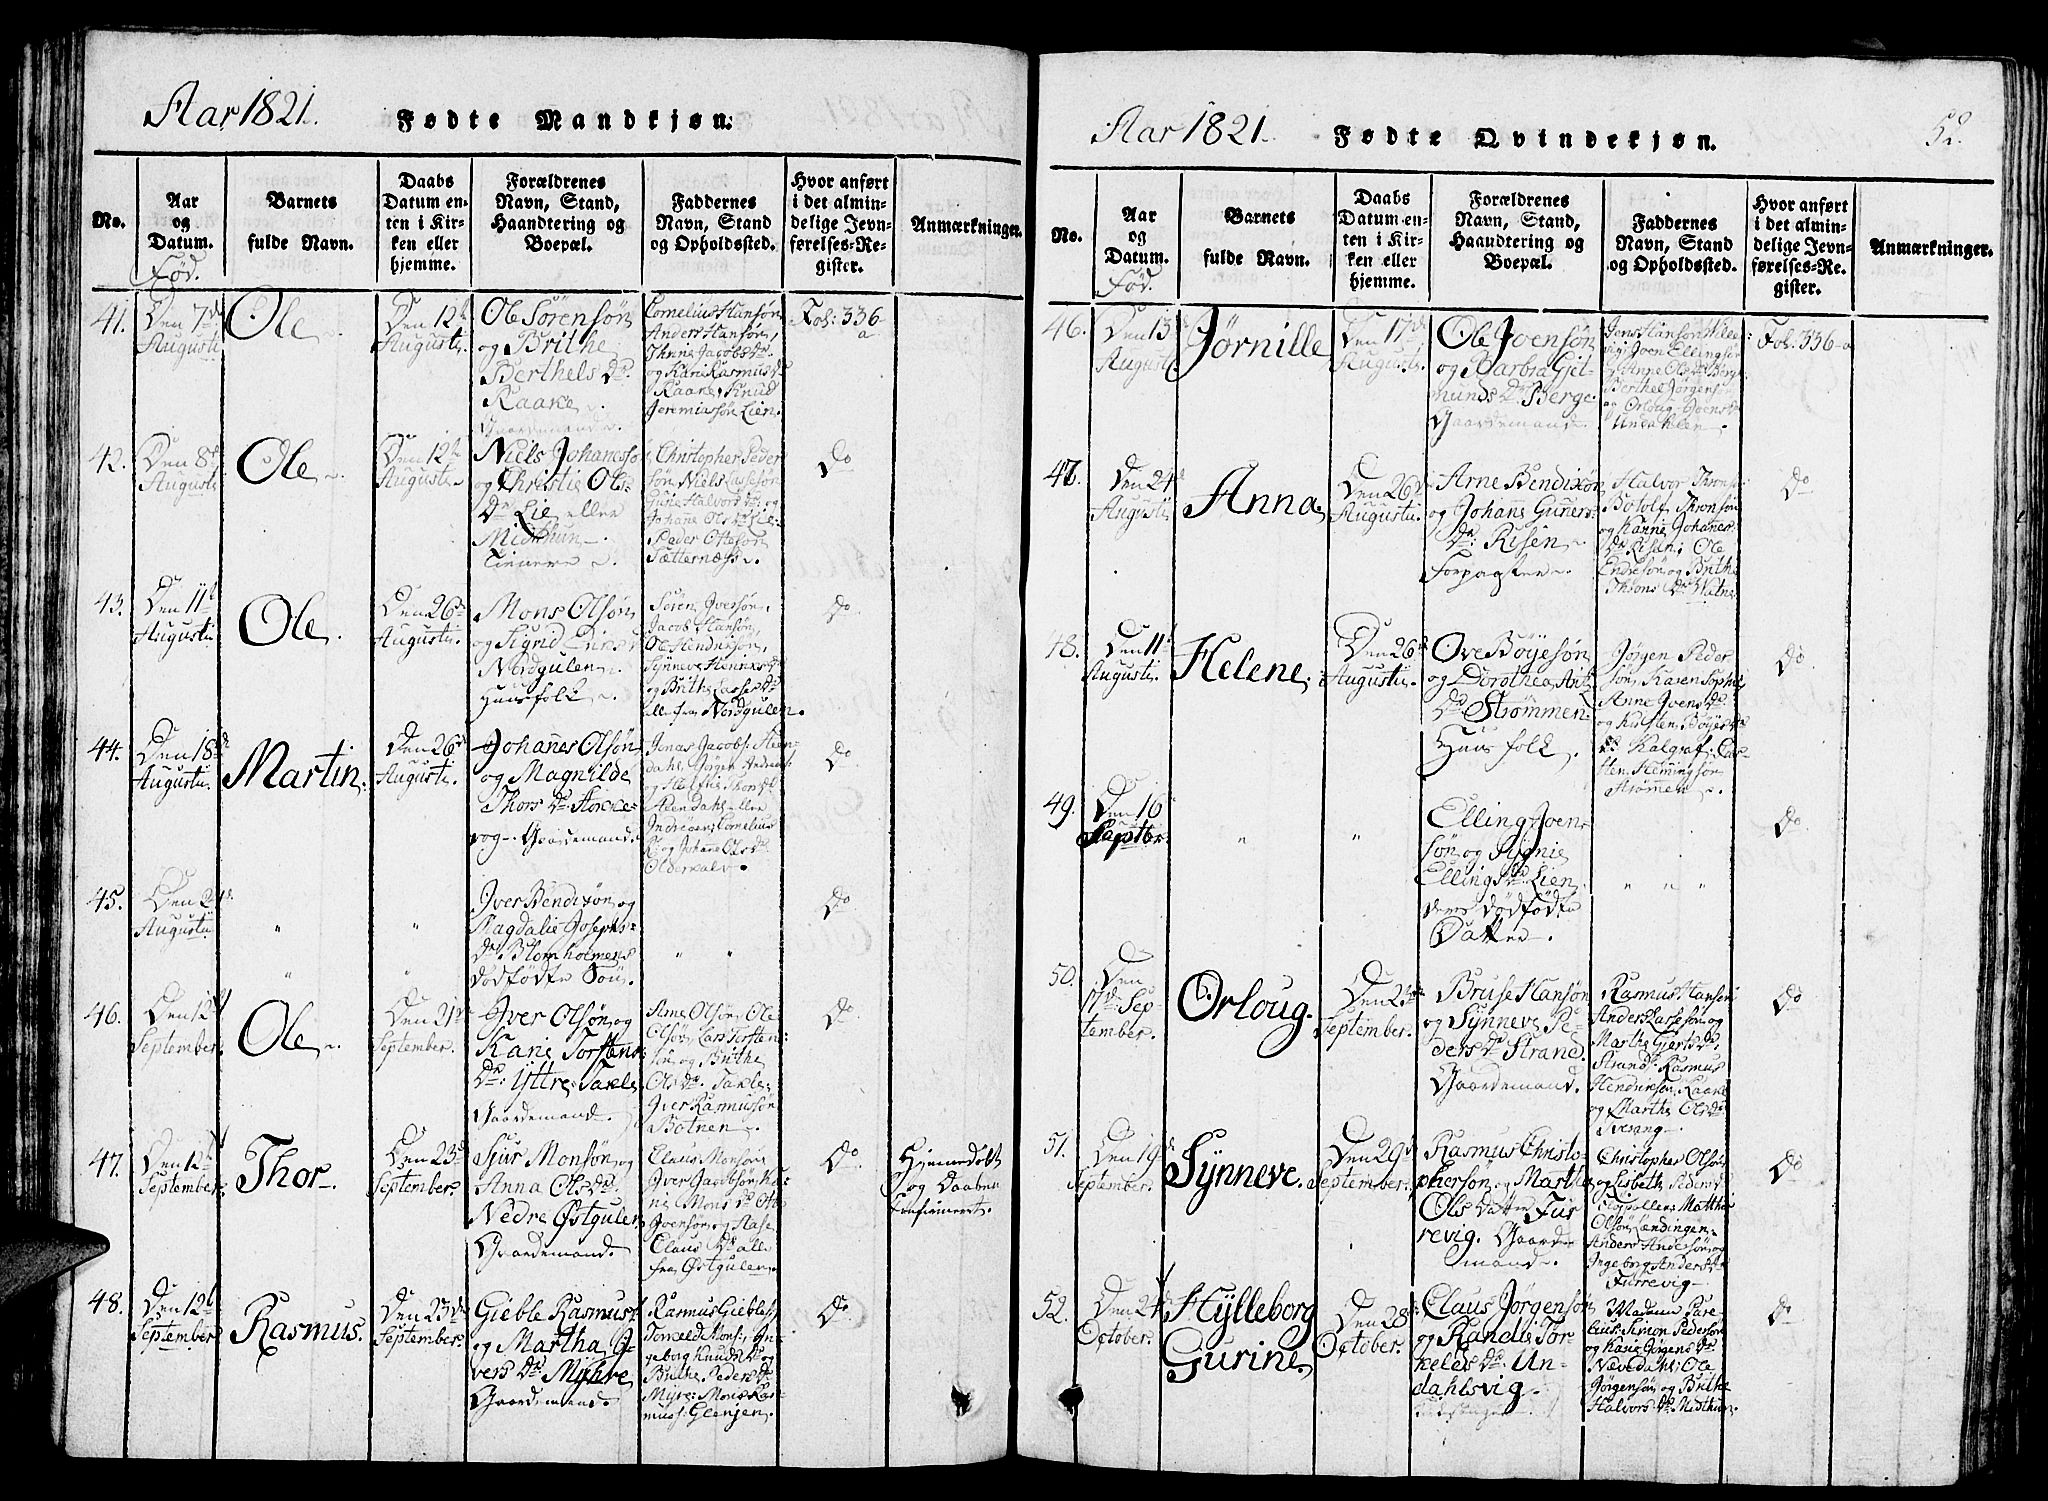 Aar 1821.
Fødte Mandkjøn.
No.
Aar
og
Datum.
Fød.
Barnets
fulde Navn.
Daabs
Datum en-
ten i Kir-
ken eller
hjemme.
Forældrenes
Navn, Stand,
Haandtering og
Boepæl.
Faddernes
Navn, Stand
og Opholdssted.
Hvor anført
i det almin-
delige Jevn-
førelses-Re-
gister.
Anmærkninger.
41.
Den 7de
Augusti
Ole
Den 12te
Augusti.
Ole Sörensön
og Brithe
Berthels Dr.
Kaake
Gaardemand.
Cornelius Hansön
Anders Hansön,
Anne Jacobs Dr.
og Kari Rasmus Dr.
Kaake, Knud
Jeremiasön Lien.
Fol: 336
a
42.
Den 8de
Augusti
Ole
Den 12te
Augusti
Niels Johanessö
og Christie Ols
Dr. Lie eller
Midthun
Tienere
Christopher Peder
sön Niels Lassesön
Halvors Dr. og
Johane Ols Dr. Lie
Peder Ottesön
Sætternæss.
Do
43.
Den 11te
Augusti
Ole.
Den 26de
Augusti.
Mons Olsön
og Sigrid
Nordgulen
Huusfolk
Sören Iversön,
Jacob Hansön,
Ole Hendricsön,
Synneve Henrics Dr
og Brithe Lasses Dr
alle fra Nordgulen.
Do
44.
Den 18de
Augusti.
Martin.
Den 26de
Augusti.
Johannes Olsön
og Magnilde
Thors Dr. Stokke-
vog. Gaardemand.
Jonas Jacobs:
dahl, Jörgen
og Thors Dr
eller
Indreöen; Cornelius
og Johane Ols Dr.
Olderkalv.
Do
45.
Den 24de
Augusti
"
"
Iver Bendixön og
Magdalie Josephs
Dr Blomholmens
dödfödte Sön.
" "
Do
46.
Den 12te
September.
Ole
Den 21de
September.
Iver Olsön og
Karie Torstens
Dr: Yttre Takle
Gaardemand.
Arne Olsön, Ole
Olsön, Lars Torsten-
sön og Brithe
Ols Dr. Takle;
Iver Rasmusön
Botnen
Do
47.
Den 12te
September.
Thor
Den 23de
September.
Sjur Monsön og
Anna Ols Dr.
Nedre Östgulen
Gaardemand.
Claus Monsön
Iver Jacobsön, Ka-
rie Mons Dr. Ole
Joensön, og Aase
Claus Dr alle
fra Östgulen.
Do
Hjemmedöbt
og Daaben
Confirmeret.
48.
Den 12te
September
Rasmus.
Den 23de
September.
Gieble Rasmus:
og Martha I-
vers Dr. Myhre
Gaardemand
Rasmus Gieble:
Mons:, In-
geborg Knuds Dr og
Brithe Peders Dr
Myre; Mons Ras-
mus: Glenjen.
Do
Aar 1821.
Fødte Qvindekjøn.
52.
No.
Aar
og
Datum.
Fød.
Barnets
fulde Navn.
Daabs
Datum en-
ten i Kir-
ken eller
hjemme.
Forældrenes
Navn, Stand,
Haandtering og
Boepæl.
Faddernes
Navn, Stand
og Opholdssted.
Hvor anført
i det almin-
delige Jevn-
førelses-Re-
gister.
Anmærkninger.
46.
Den 13de
August.
Jörnille
Den 17de
Augusti.
Ole Joensön
og Barbra Gjet-
munds Dr. Berge.
Gaardemand.
Jens Hansön
Joen Ellingsön
Anne Ols Dr. Berge
Berthe Jörgens
og Orloug Joens Dr
Undahlen.
Fol. 336 a
47.
Den 24de
Augusti
Anna
Den 26de
Augusti.
Arne Bendixön
og Johane Guners
Dr: Risen
Forpagter.
Halvor Throns:
Botolf Thronsön
og Karine Johanes
Dr. Risen; Ole
Endresön og Brithe
Throns Dr Watne.
Do
48.
Den 11te
Augusti.
Helene.
Den 26de
Augusti.
Ove Böyesön
og Dorothea
Dr. Strömmen
Huusfolk.
Jörgen Peder
sön, Karen Sophie,
Anne Ivers Dr.
og Kirsten Böyes Dr
Kalgraf; Car-
sten Flemingsön
Strömmen
Do
49.
Den 16
Septbr.
"
"
Elling Joen-
sön og
Ellings Dr. Lien
deres dödfödte
Datter.
" " "
Do
50.
Den
17de Sep
tember.
Orloug.
Den 23de
September.
Bruse Hansön
og Synneve Pe-
ders Dr Strand.
Gaardemand.
Rasmus Hansön
Anders Lassesön og
Marthe Gierts Dr
Strand; Rasmus
Hendricsön Kaake
og Marthe Ols Dr
Sverang.
Do
51.
Den 19de
September.
Synneve.
Den 29de
September.
Rasmus Christo-
phersön og Marthe
Ols Datter Fur
revig. Gaarde
mand.
Christopher Olsön
og Lisbeth Peders Dr
Matthis
Olsön Lændingen
Anders Andersön og
Ingeborg Anders Dr
Furrevig
Do
52.
Den 24de
October.
Hylleborg
Gurine.
Den 28de
October.
Claus Jörgensön
og Randi Tor-
kelds Dr. Un-
dahlsvig.
Madme Pare-
lius: Simon Pedersön
og Karie Jörgens Dr
Nævedahl; Ole
Jörgensön og Brithe
Halvors Dr. Midthun.
Do